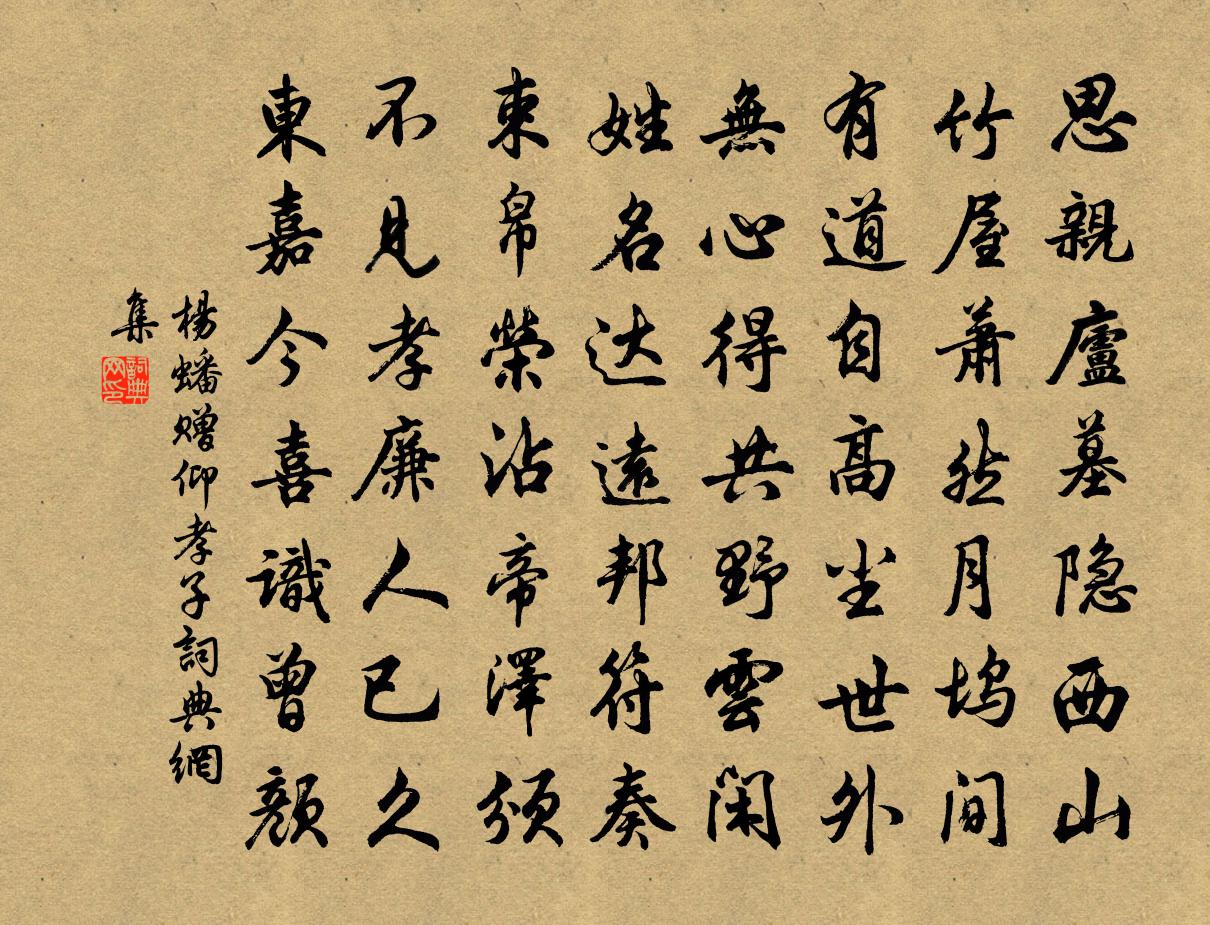 思親廬墓隐西山
竹屋蕭然月塢间
有道自高尘世外
無心得共野雲闲
姓名达遠邦符奏
束帛榮沾帝澤颁
不見孝廉人已久
東嘉今喜識曾颜
楊蟠赠仰孝子詞典網
集
詞典网印